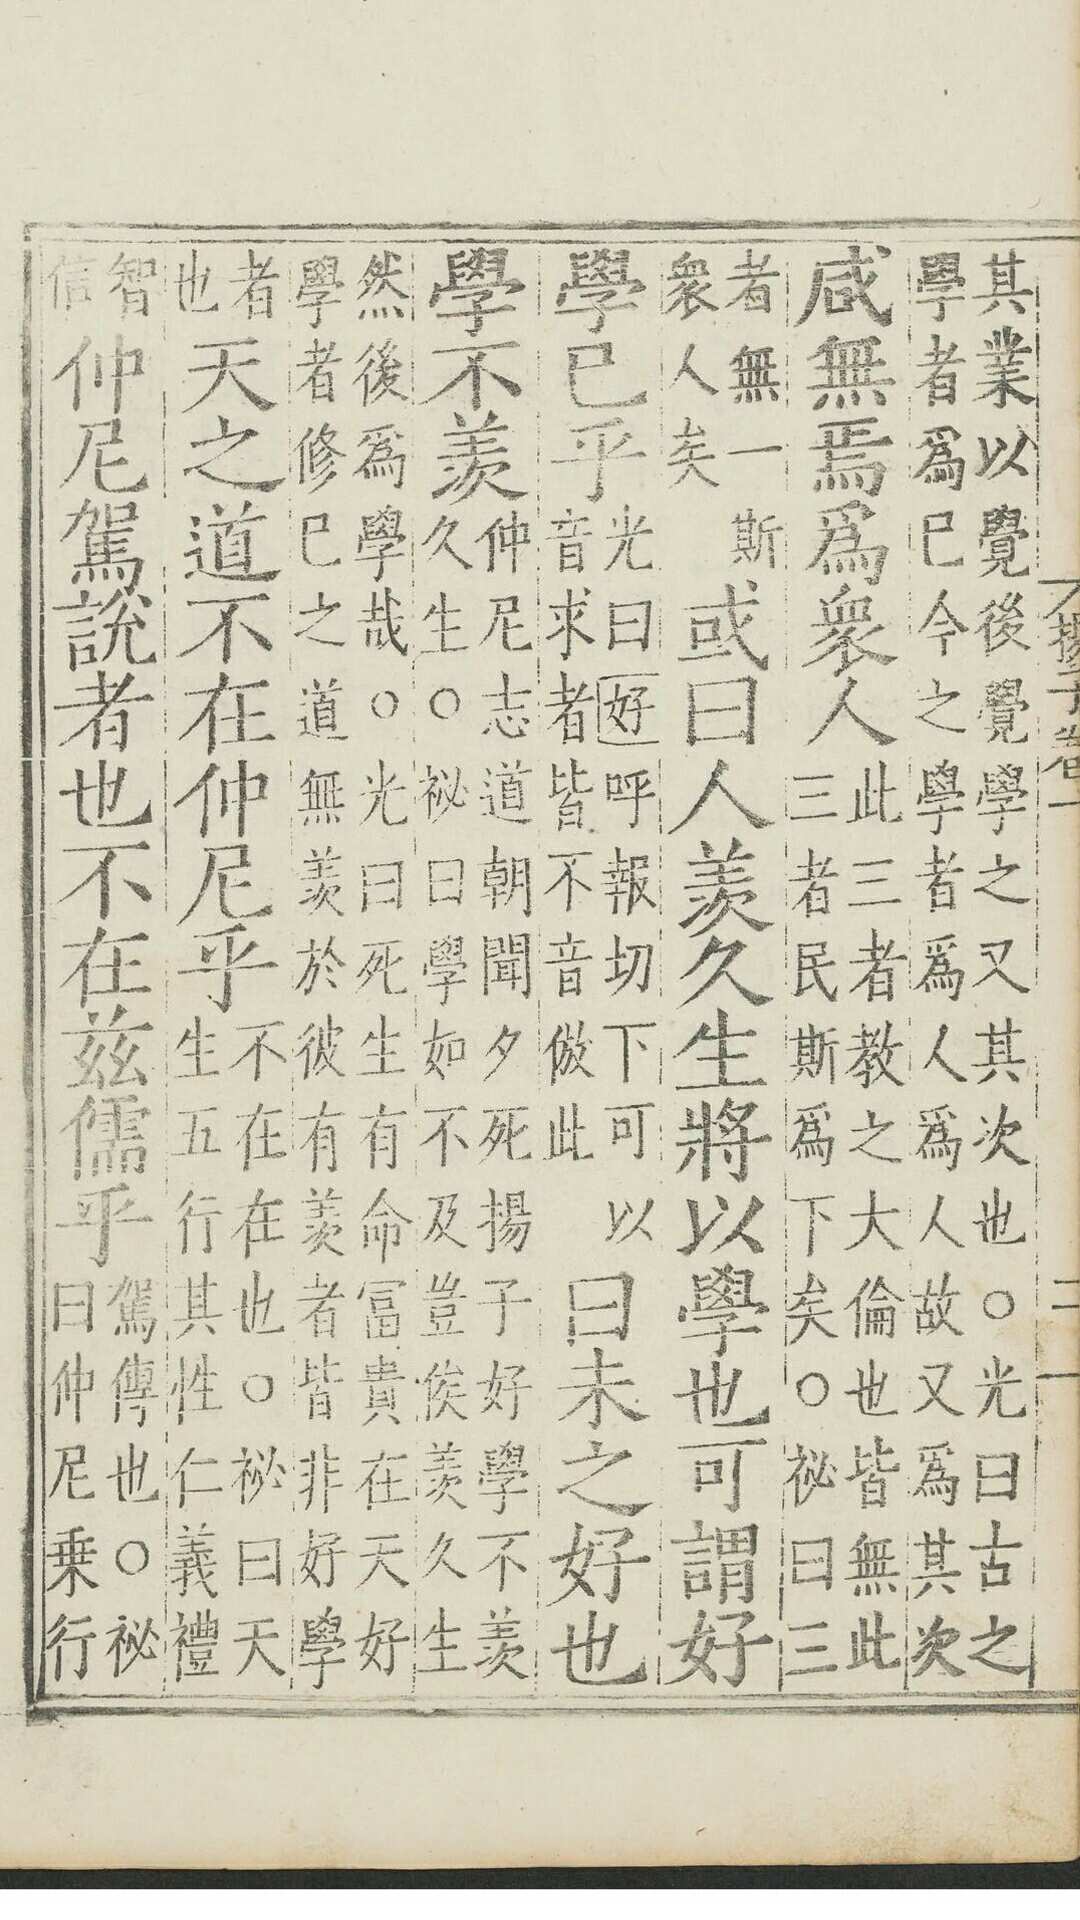 其業以覺後覺學之又其次也○光曰古之
學者爲巳今之學者爲人爲人故又爲其次
咸無焉爲衆人此三者教之大倫也皆無此
三者民斯爲下矣○祕曰三
者無一斯
衆人矣
或曰人羨久生將以學也可謂好
學巳乎光曰好呼報切下可以
音求者皆不音倣此
曰未之好也
學不羨仲尼志道朝聞夕死揚子好學不羨
久生○祕曰學如不及豈俟羨久生
然後爲學哉○光曰死生有命冨貴在天好
學者修巳之道無羨於彼有羨者皆非好學
者
也
天之道不在仲尼乎不在在也○祕曰天
生五行其性仁義禮
智
信
仲尼駕說者也不在兹儒乎駕傳也○祕
曰仲尼乗行